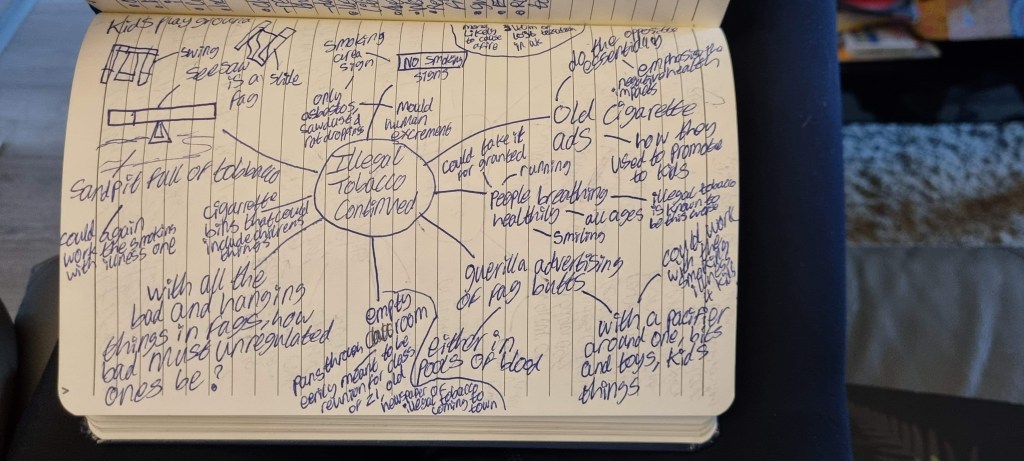 Kids playground
swing
seesaw
is a
fag
slide
smoking
area
sign
NO smoking
signs
more
likely
to cause
a fire
in uk
only
asbestos
sawdust
rat droppings
mould
human
excrement
the opposite
do
advertising
emphasise the
negative health
impacts
Old cigarette
ads
how they
used to promote
to kids
could take it
for granted
running
People breathing
healthily
all ages
smiling
illegal tobacco
is known to
be
Illegal
Tobacco
Continued
Sandpit full of tobacco
could again
work the smoking
with illness one
cigarette
bins that could
include childrens
things
with all the
bad and banging
things in fags, how
bad must unregulated
ones be?
empty
classroom
pans through
eerily meant to be
reunion for class
of 21
newspaper of old
illegal tobacco
coming to
town
guerilla advertising
of fag butts
either in
pools of blood
could work
with
smoking
in
4 kids
with a pacifier
around one, bibs
and toys, kids
things